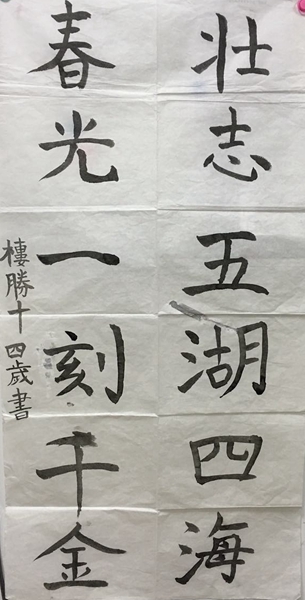 壯志五湖四海
春光一刻千金
樓勝十四歲書